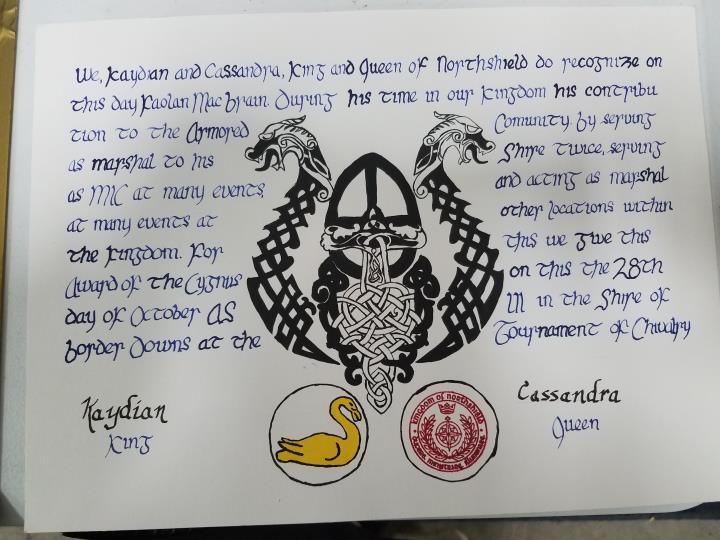 We, Kaydian and Cassandra, King and Queen of Northshield do recognize on
this day Faolan Mac Brain. During his time in our kingdom his contribu
tion to the Armored Comunity. By serving
as marshal to his Shire twice, serving
as MIC at many events, and acting as marshal
at many events at other locations within
the kingdom. For this we give this
Award of the Cygnus on this the 28th
day of October AS LII in the Shire of
Border Downs at the Tournament of Chivalry
Kaydian Cassandra
King Queen
kingdom of northshield